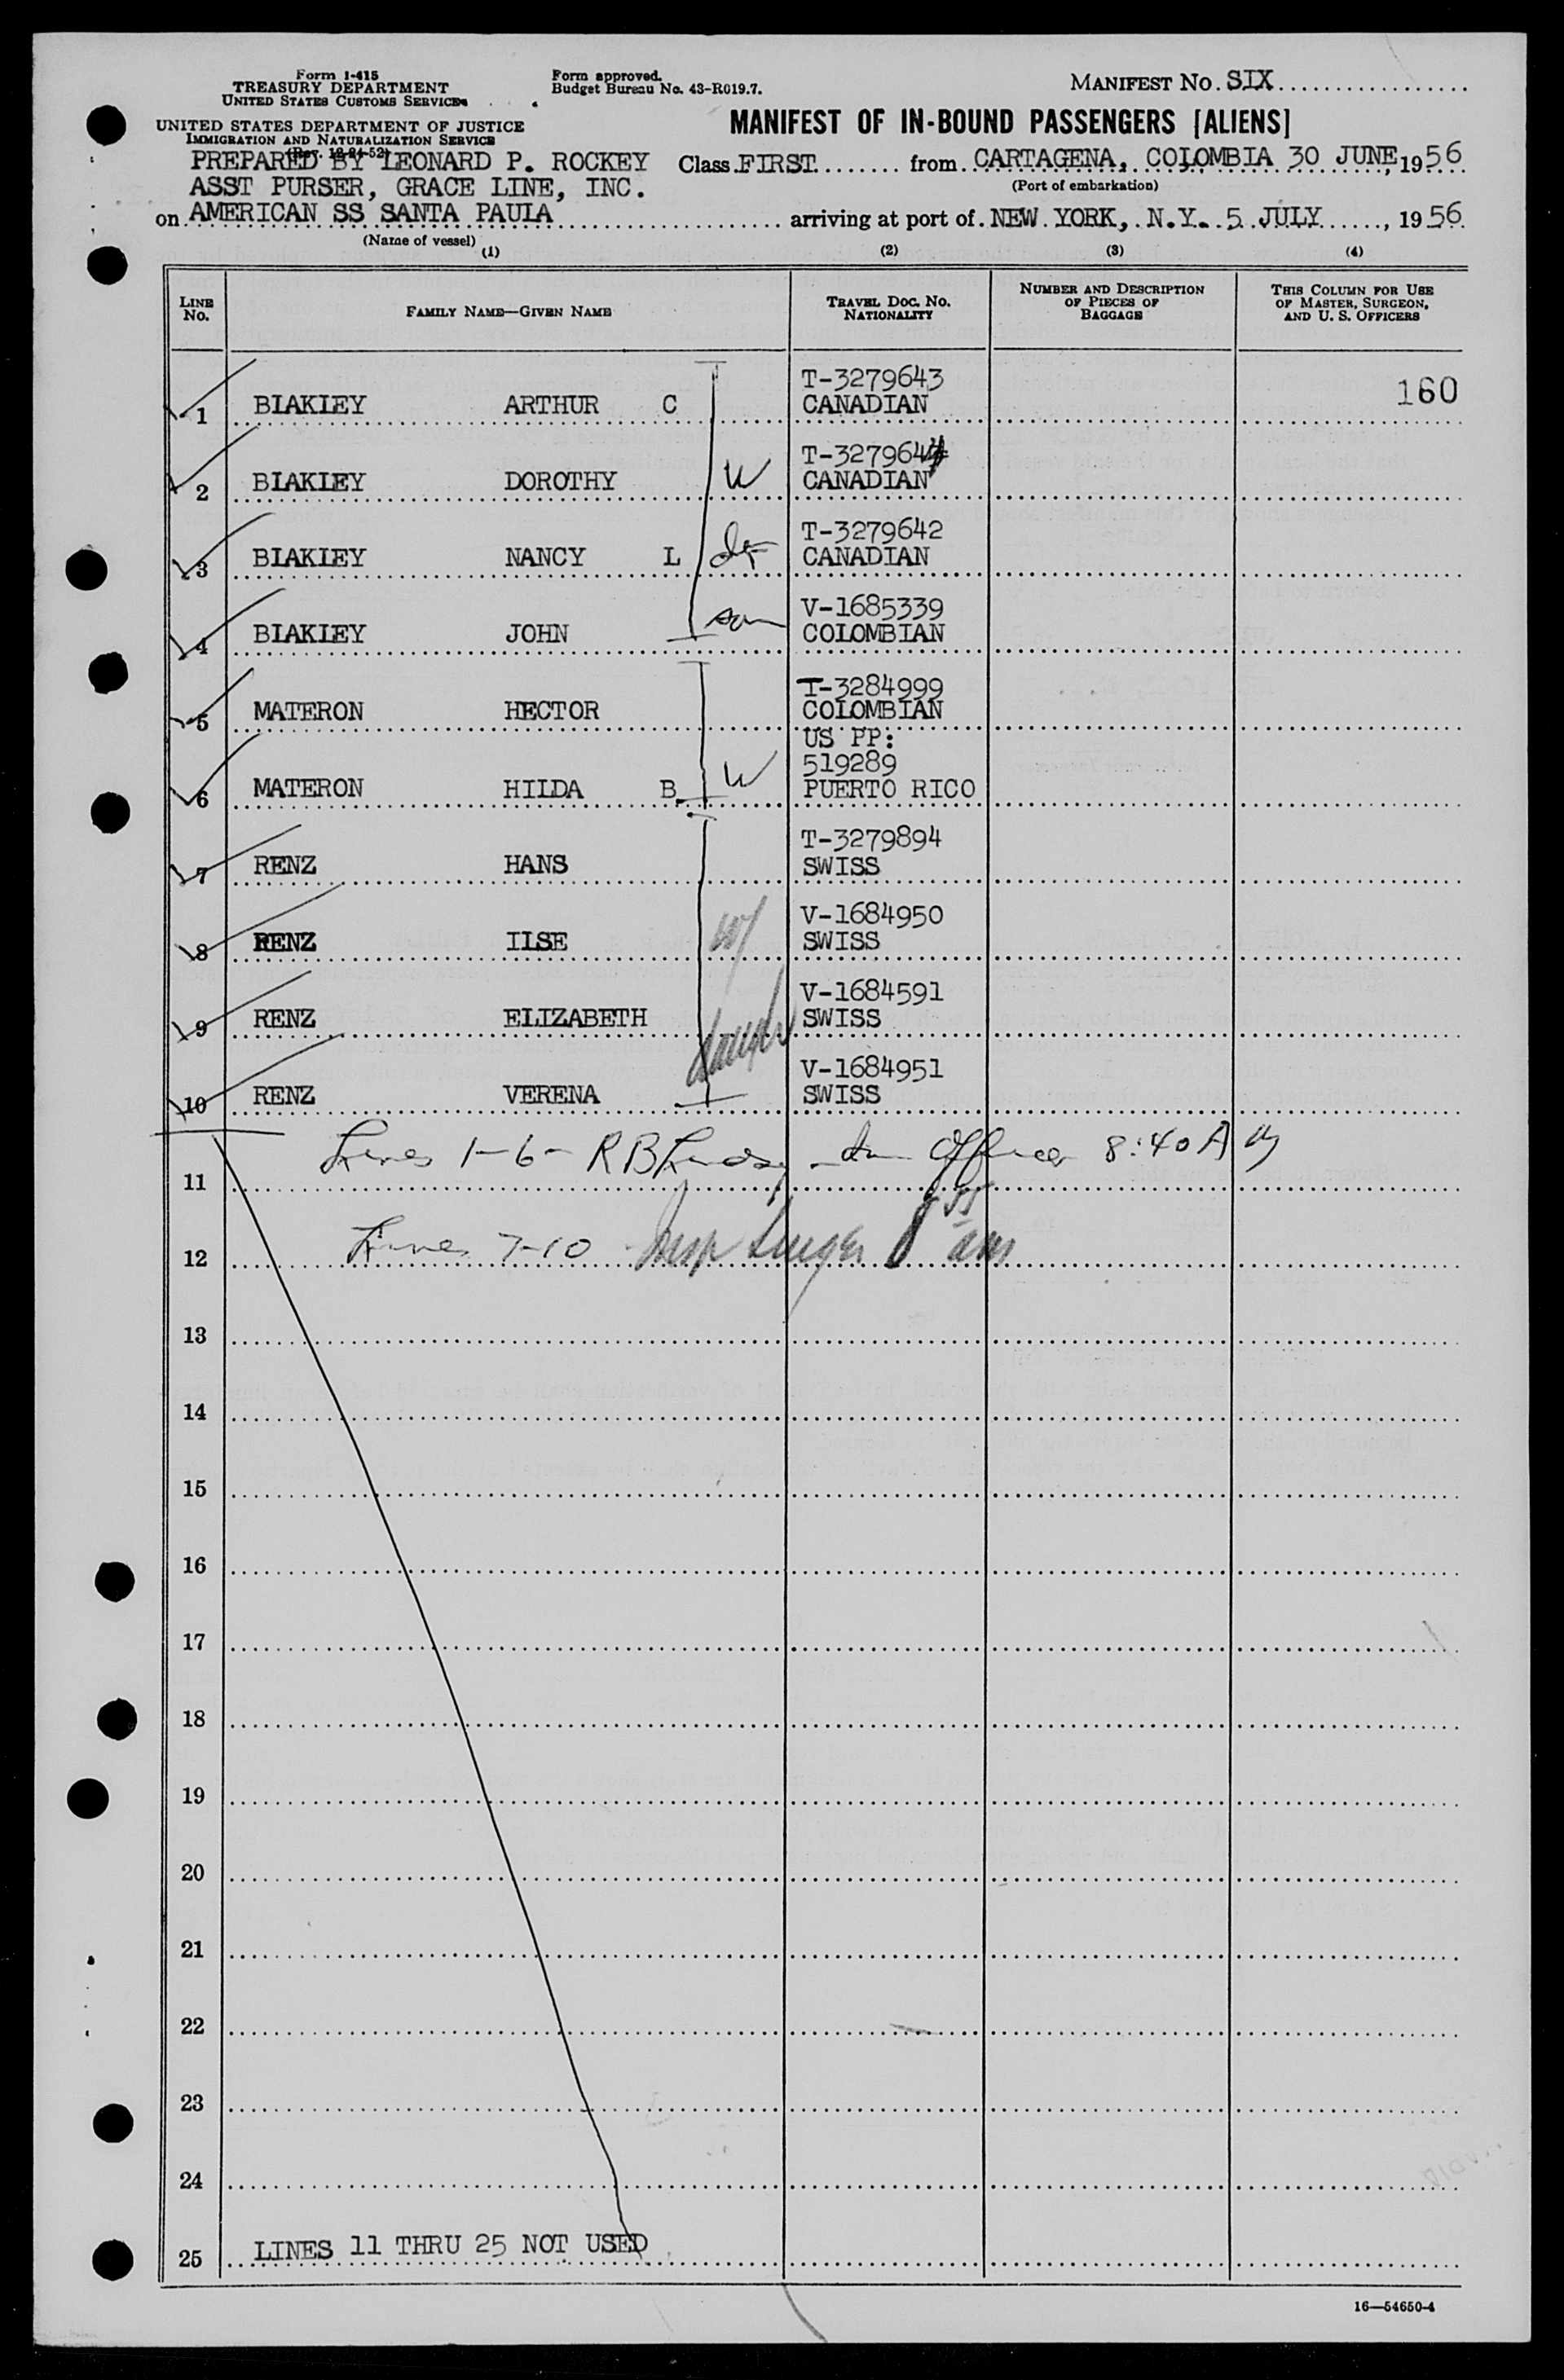 Form I-415
TREASURY DEPARTMENT
UNITED STATES CUSTOMS SERVICE
Form approved.
Budget Bureau No. 43-R019.7.
MANIFEST NO. SIX
UNITED STATES DEPARTMENT OF JUSTICE
IMMIGRATION AND NATURALIZATION SERVICE
MANIFEST OF IN-BOUND PASSENGERS [ALIENS]
PREPARED BY LEONARD P. ROCKEY
ASST PURSER, GRACE LINE, INC.
Class FIRST from CARTAGENA, COLOMBIA 30 JUNE, 1956
(Port of embarkation)
on AMERICAN SS SANTA PAULA arriving at port of NEW YORK, N.Y. 5 JULY, 1956
(Name of vessel)
(1) (2) (3) (4)
LINE NO. FAMILY NAME—GIVEN NAME TRAVEL DOC. NO. NATIONALITY NUMBER AND DESCRIPTION OF PIECES OF BAGGAGE THIS COLUMN FOR USE OF MASTER, SURGEON, AND U. S. OFFICERS
T-3279643
1 BLAKLEY ARTHUR C CANADIAN 160
T-3279644
2 BLAKLEY DOROTHY W CANADIAN
T-3279642
3 BLAKLEY NANCY L CANADIAN
V-1685339
4 BLAKLEY JOHN son COLOMBIAN
T-3284999
5 MATERON HECTOR COLOMBIAN
US PP:
519289
6 MATERON HILDA B W PUERTO RICO
T-3279894
7 RENZ HANS SWISS
V-1684950
8 RENZ ILSE W SWISS
V-1684591
9 RENZ ELIZABETH SWISS
V-1684951
10 RENZ VERENA SWISS
11 Lines 1-6- R B Lindsay Officer 8:40 A
12 Lines 7-10 Insp 8 55 am
13
14
15
16
17
18
19
20
21
22
23
24
25 LINES 11 THRU 25 NOT USED
16—54650-4